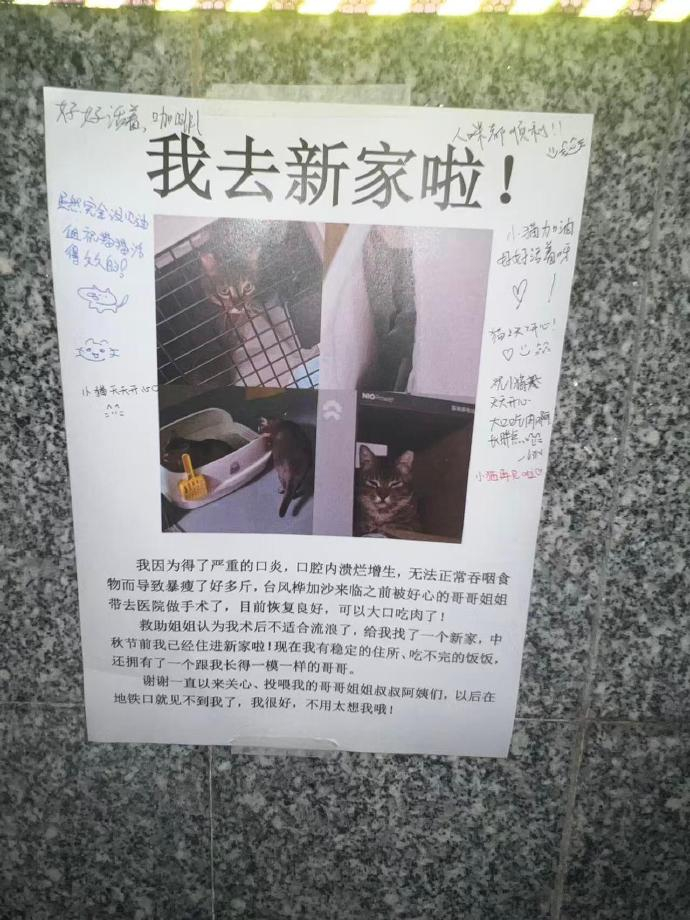 好好活着，咖啡！
人咪都顺利!!
我去新家啦！
虽然完全没见过
但祝猫猫活
得久久的！
小猫天天开心
小猫加油
好好活着呀
猫天天开心！
祝小猫
天天开心
大口吃肉啊
长胖点
小猫再见啦
NIO
我因为得了严重的口炎，口腔内溃烂增生，无法正常吞咽食
物而导致暴瘦了好多斤，台风桦加沙来临之前被好心的哥哥姐姐
带去医院做手术了，目前恢复良好，可以大口吃肉了！
救助姐姐认为我术后不适合流浪了，给我找了一个新家，中
秋节前我已经住进新家啦！现在我有稳定的住所、吃不完的饭饭，
还拥有了一个跟我长得一模一样的哥哥。
谢谢一直以来关心、投喂我的哥哥姐姐叔叔阿姨们，以后在
地铁口就见不到我了，我很好，不用太想我哦！